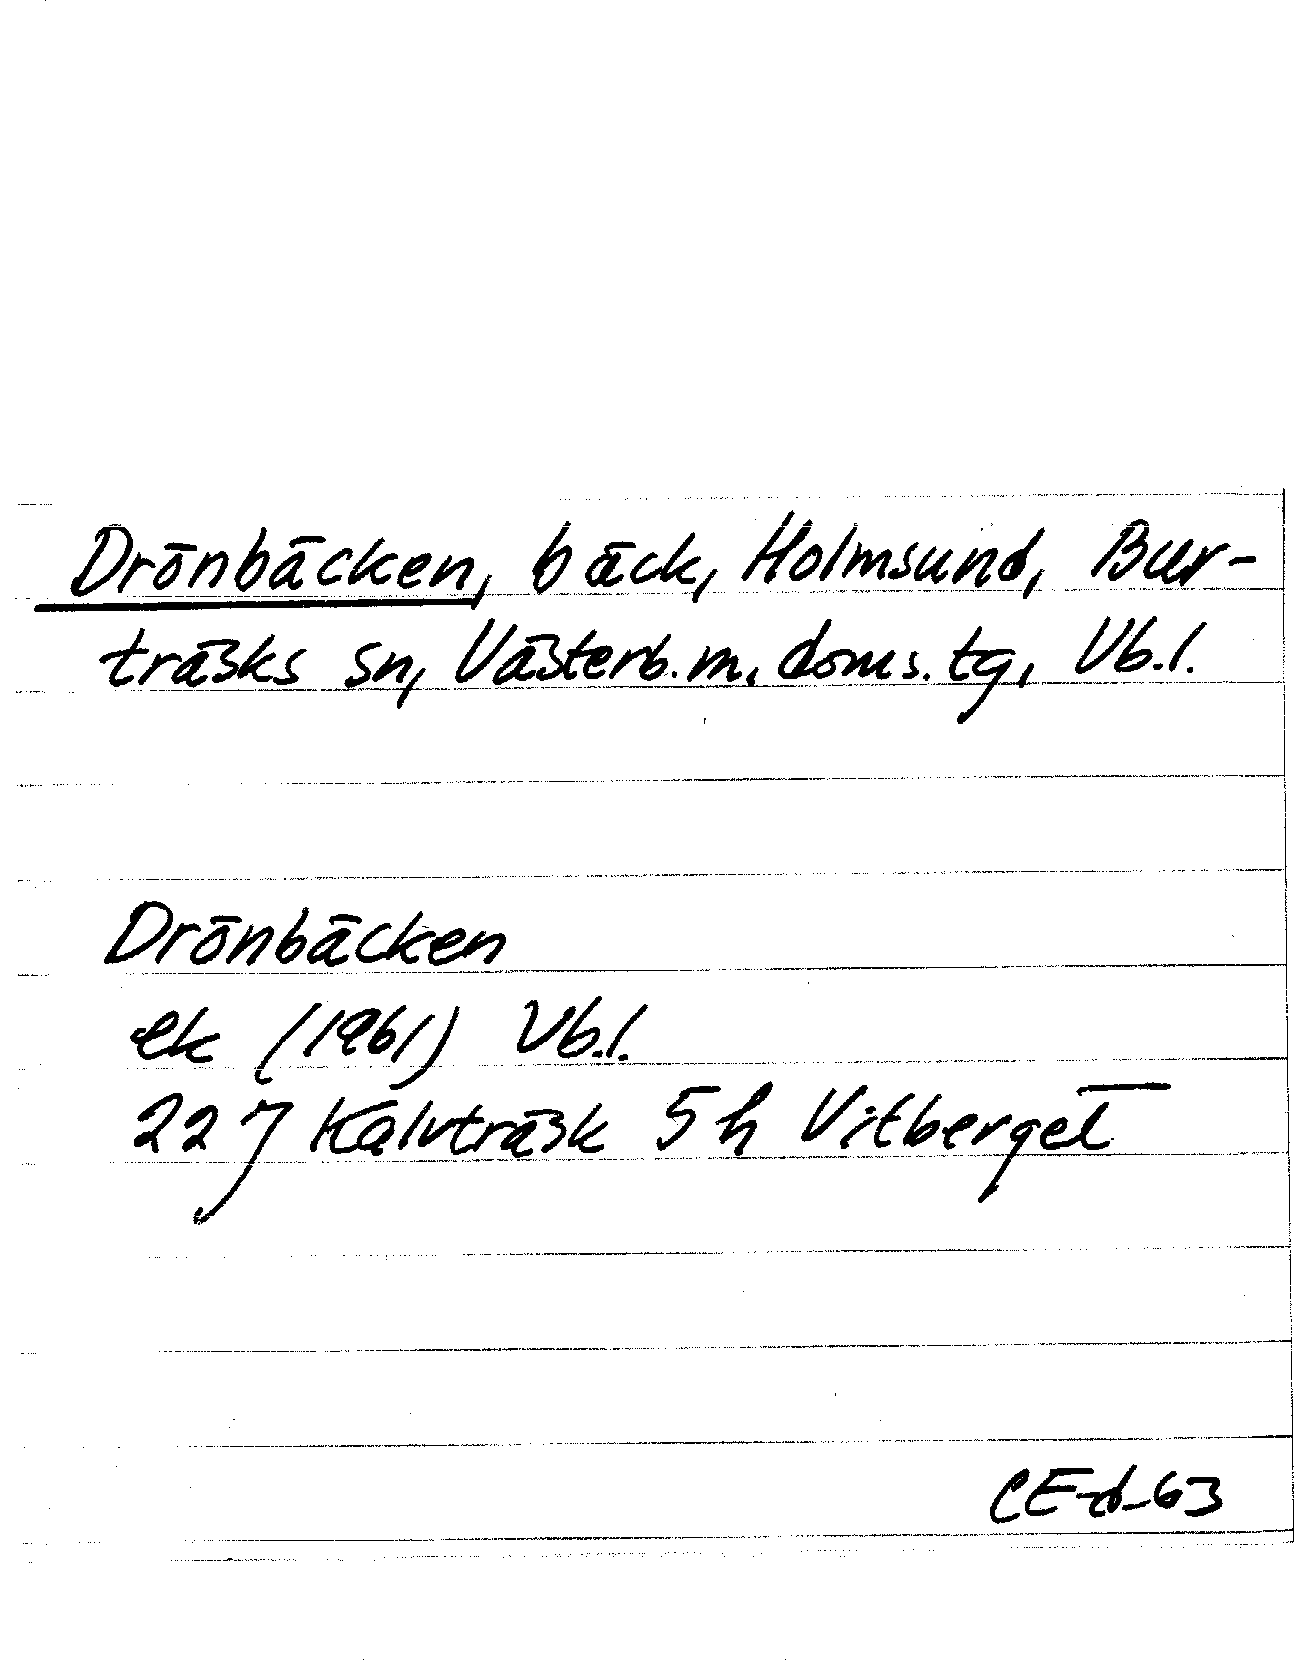 Drönbäcken, bäck, Holmsund, Bur-
träsks sn, Västerb. m. doms. tg, Vb.l.
Drönbäcken
ek (1961) Vb.l.
22 J Kalvträsk 5 h Vitberget
CE-d-63